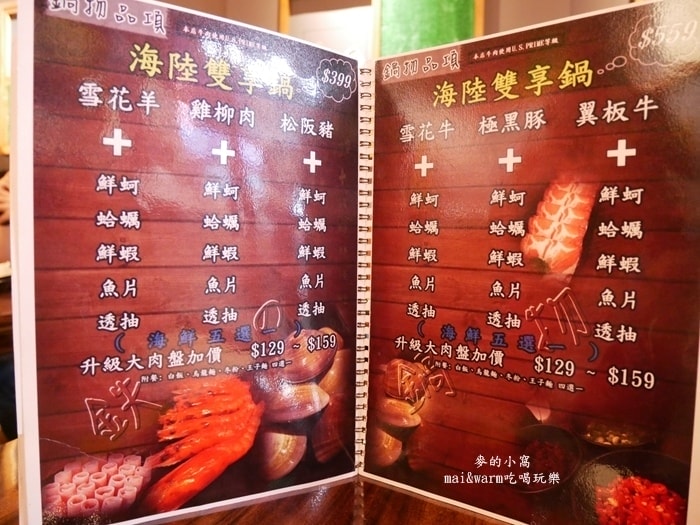 鍋物品項
本店牛肉使用U.S.PRIME等級
海陸雙享鍋
$399
雪花羊 雞柳肉 松阪豬
+ + +
鮮蚵 鮮蚵 鮮蚵
蛤蠣 蛤蠣 蛤蠣
鮮蝦 鮮蝦 鮮蝦
魚片 魚片 魚片
透抽 透抽 透抽
(海鮮五選一)
升級大肉盤加價 $129~$159
附餐:白飯、烏龍麵、冬粉、王子麵 四選一
鍋物品項
本店牛肉使用U.S.PRIME等級
$559
海陸雙享鍋
雪花牛 極黑豚 翼板牛
+ + +
鮮蚵 鮮蚵 鮮蚵
蛤蠣 蛤蠣 蛤蠣
鮮蝦 鮮蝦 鮮蝦
魚片 魚片 魚片
透抽 透抽 透抽
(海鮮五選一)
升級大肉盤加價 $129 ~ $159
附餐:白飯、烏龍麵、冬粉、王子麵 四選一
麥的小窩
mai&warm吃喝玩樂